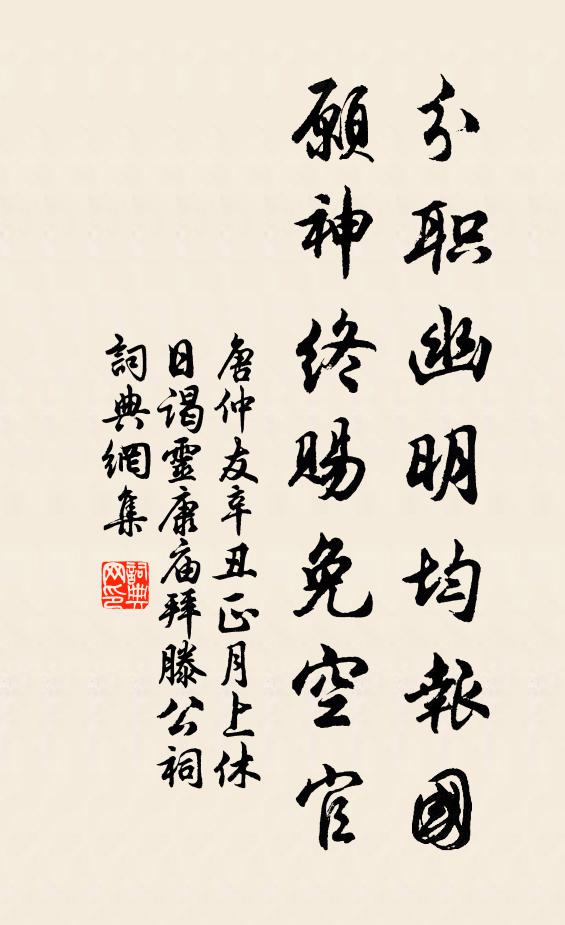 分职幽明均報國
願神终赐免空官
唐仲友辛丑正月上休
日谒靈康庙拜滕公祠
詞典網集
詞典网印